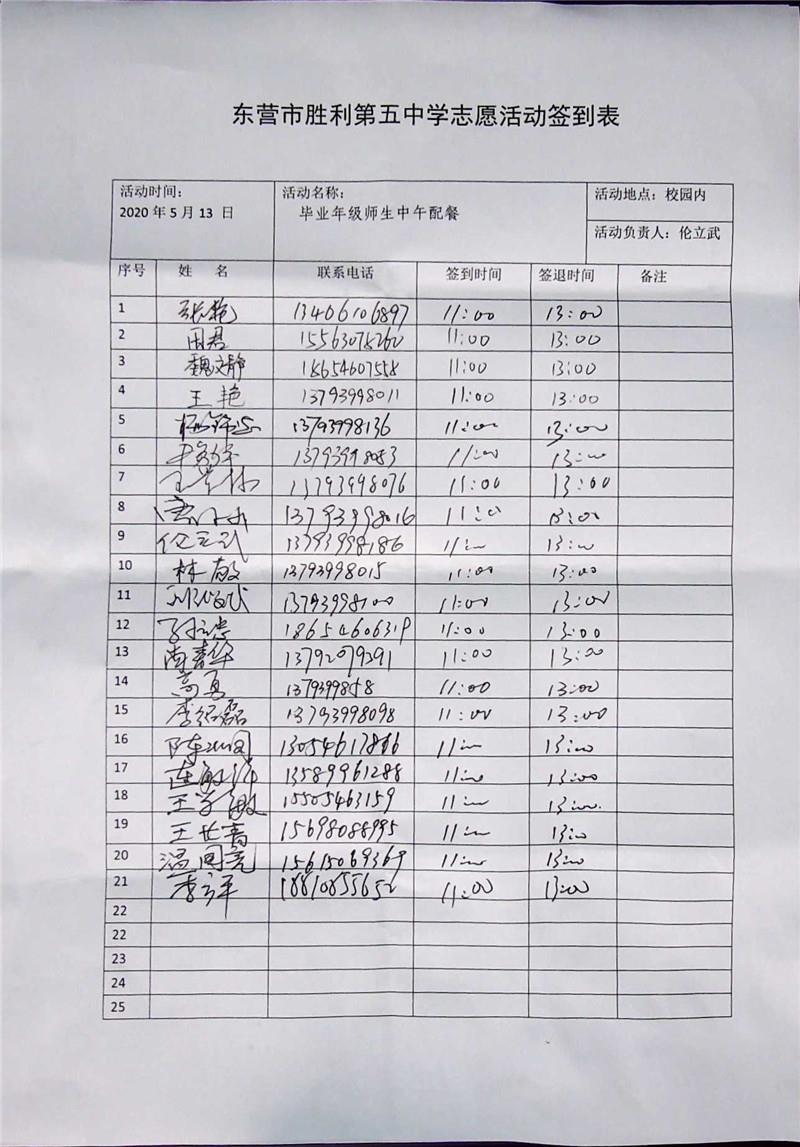 东营市胜利第五中学志愿活动签到表
活动时间： 活动名称： 活动地点：校园内
2020 年 5 月 13 日 毕业年级师生中午配餐
活动负责人：伦立武
序号 姓 名 联系电话 签到时间 签退时间 备注
1 张艳 13406106897 11:00 13:00
2 周君 15563078262 11:00 13:00
3 魏文静 18654607558 11:00 13:00
4 王艳 13793998011 11:00 13:00
5 13793998136 11:00 13:00
6 13793998083 11:00 13:00
7 13793998076 11:00 13:00
8 13793998016 11:00 13:00
9 伦立武 13793998186 11:00 13:00
10 林敬 13793998015 11:00 13:00
11 13793998100 11:00 13:00
12 18654606319 11:00 13:00
13 尚春华 13792079291 11:00 13:00
14 高勇 1379399858 11:00 13:00
15 李绍磊 13793998098 11:00 13:00
16 13054617866 11:00 13:00
17 13589961288 11:00 13:00
18 15505463159 11:00 13:00
19 王世青 15698088995 11:00 13:00
20 温国亮 15615069369 11:00 13:00
21 18810855652 11:00 13:00
22
22
23
24
25